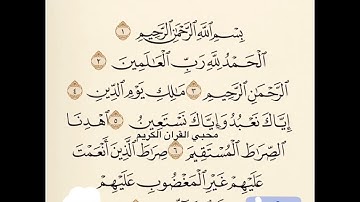 بِسْمِ اللَّهِ الرَّحْمَٰنِ الرَّحِيمِ ١
الْحَمْدُ لِلَّهِ رَبِّ الْعَالَمِينَ ٢
الرَّحْمَٰنِ الرَّحِيمِ ٣ مَالِكِ يَوْمِ الدِّينِ ٤
إِيَّاكَ نَعْبُدُ وَإِيَّاكَ نَسْتَعِينُ ٥ اهْدِنَا
محبي القران الكريم
الصِّرَاطَ الْمُسْتَقِيمَ ٦ صِرَاطَ الَّذِينَ أَنْعَمْتَ
عَلَيْهِمْ غَيْرِ الْمَغْضُوبِ عَلَيْهِمْ